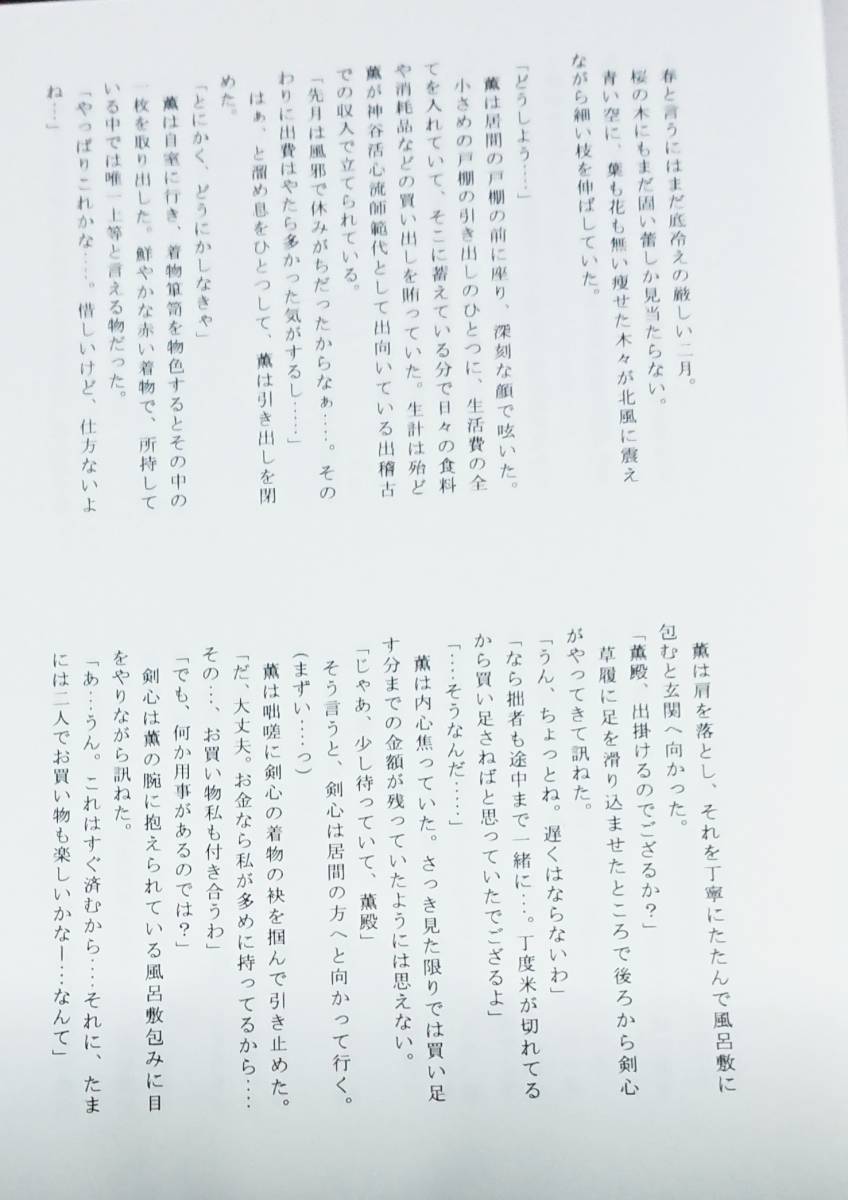 春と言うにはまだ底冷えの厳しい二月。
桜の木にもまだ固い蕾しか見当たらない。
青い空に、葉も花も無い痩せた木々が北風に震え
ながら細い枝を伸ばしていた。
「どうしよう‥‥」
薫は居間の戸棚の前に座り、深刻な顔で呟いた。
小さめの戸棚の引き出しのひとつに、生活費の全
てを入れていて、そこに蓄えている分で日々の食料
や消耗品などの買い出しを賄っていた。生計は殆ど
薫が神谷活心流師範代として出向いている出稽古
での収入で立てられている。
「先月は風邪で休みがちだったからなぁ‥‥。その
わりに出費はやたら多かった気がするし‥‥」
はぁ、と溜め息をひとつして、薫は引き出しを閉
めた。
「とにかく、どうにかしなきゃ」
薫は自室に行き、着物箪笥を物色するとその中の
一枚を取り出した。鮮やかな赤い着物で、所持して
いる中では唯一上等と言える物だった。
「やっぱりこれかな‥‥。惜しいけど、仕方ないよ
ね‥‥」
薫は肩を落とし、それを丁寧にたたんで風呂敷に
包むと玄関へ向かった。
「薫殿、出掛けるのでござるか？」
草履に足を滑り込ませたところで後ろから剣心
がやってきて訊ねた。
「うん、ちょっとね。遅くはならないわ」
「なら拙者も途中まで一緒に‥‥。丁度米が切れてる
から買い足さねばと思っていたでござるよ」
「‥‥そうなんだ‥‥」
薫は内心焦っていた。さっき見た限りでは買い足
す分までの金額が残っていたようには思えない。
「じゃあ、少し待っていて、薫殿」
そう言うと、剣心は居間の方へと向かって行く。
(まずい‥‥っ)
薫は咄嗟に剣心の着物の袂を掴んで引き止めた。
「だ、大丈夫。お金なら私が多めに持ってるから‥‥
その‥‥、お買い物私も付き合うわ」
「でも、何か用事があるのでは？」
剣心は薫の腕に抱えられている風呂敷包みに目
をやりながら訊ねた。
「あ‥‥うん。これはすぐ済むから‥‥それに、たま
には二人でお買い物も楽しいかなー‥‥なんて」